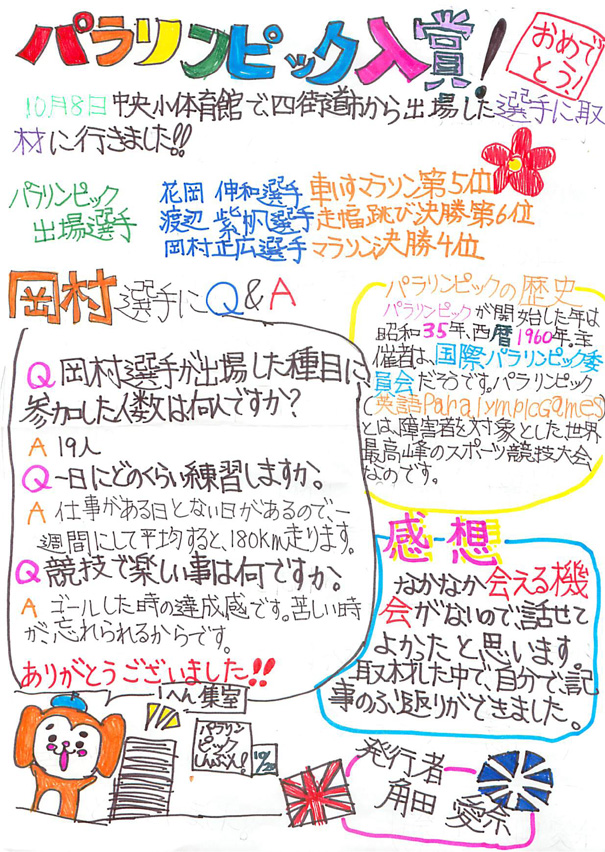 パラリンピック入賞!
おめで
とう!
10月8日中央小体育館で、四街道市から出場した選手に取
材に行きました!!
パラリンピック
出場選手
花岡 伸和選手 車いすマラソン第5位
渡辺 紫帆選手 走幅跳び決勝第6位
岡村正広選手 マラソン決勝4位
岡村選手にQ&A
Q 岡村選手が出場した種目に
参加した人数は何人ですか?
A 19人
Q 一日にどのくらい練習しますか。
A 仕事がある日とない日があるので、一
週間にして平均すると、180km走ります。
Q 競技で楽しい事は何ですか。
A ゴールした時の達成感です。苦しい時
が、忘れられるからです。
ありがとうございました!!
パラリンピックの歴史
パラリンピックが開始した年は
昭和35年、西暦1960年。主
催者は、国際パラリンピック委
員会だそうです。パラリンピック
(英語ParalympicGames)
とは、障害者を対象とした世界
最高峰のスポーツ競技大会
なのです。
感想
なかなか会える機
会がないので、話せて
よかったと思います。
取材した中で、自分で、記
事のふり返りができました。
へん集室
パラリン
ピック
しんぶん!
発行者
角田 愛奈